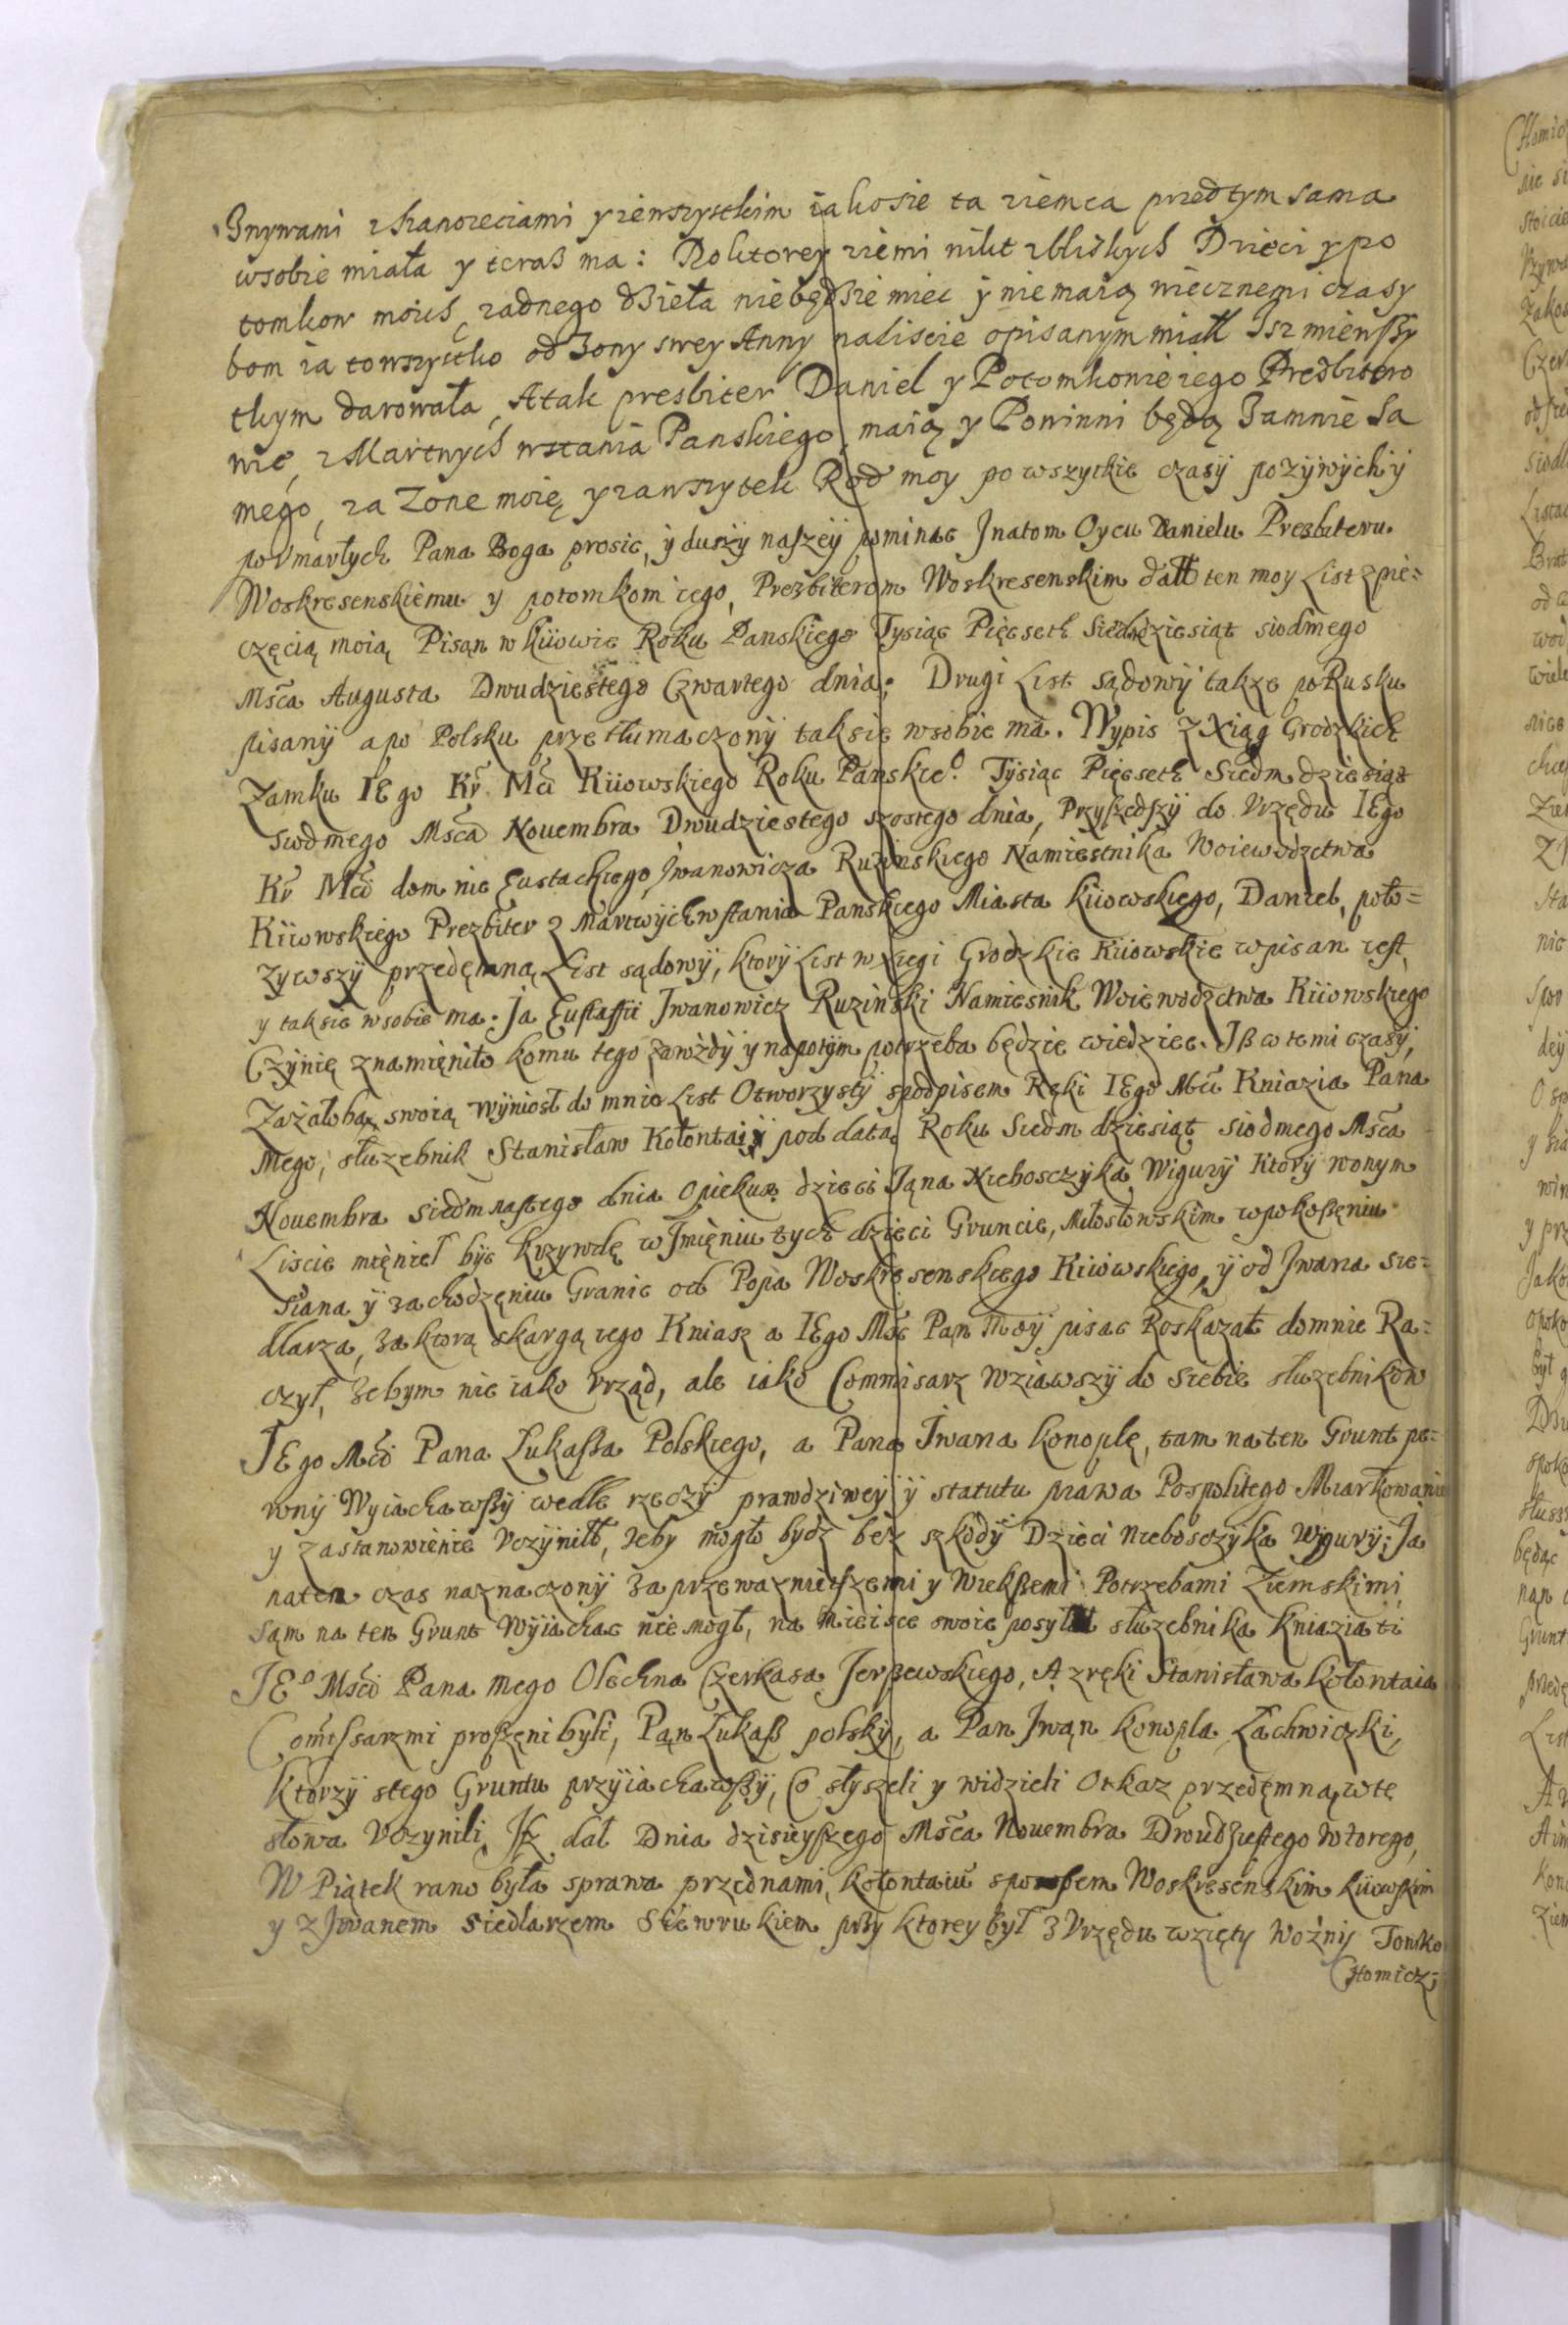 Inywami zhanozeciami y zewszystkim iakosie ta ziemca przedtym sama
wsobie miała y teraß ma: Doktorey ziemi nikt zbliskych Dzieci y po
tomkow moich, zadnego dzieła niebędzie miec y niemaią wiecznemi czasy
bom ia towszystko od Zony swey Anny naliscie opisanym miałł
tkym darowała, Atak presbiter Daniel y Potomkowie iego Presbitero
wie, zMartwych wstania Panskiego, maią y Powinni będą Zamnie Sa
mego, za Zone moię y zawszytek Rod moy po wszytkie czasÿ pozÿwÿch ÿ
poVmarłych Pana Boga prosic, ÿ duszÿ naszeÿ pominac Jnatom Oycu Danielu Prezbiteru
Woskresenskiemu y potomkom iego, Prezbiterom Woskresenskim dałł ten moy List zpie=
częcią moią Pisąn w Kiiowie Roku Panskiego Tysiąc Pięcseth Siedmdziesiąt siodmego
Msca Augusta Dwudziestego Czwartego dnia; Drugi List sądowÿ takze poRusku
pisanÿ apo Polsku przetłumaczonÿ taksie wsobie ma. Wypis z Xiąg Grodzkich
Zamku IEgo Kr Mci Kiiowskiego Roku Panskieo. Tÿsiąc Pięcseth Siedmdziesiąt
siodmego Msca Nouembra Dwudziestego szostego dnia, Przyszedszÿ do Vrzędu IEgo
Kr Mci dom nie Eustachiego Jwanowicza Ruzinskiego Namiestnika Woiewodzctwa
Kiiowskiego Prezbiter z Martwÿchwstania Panskiego Miasta Kiiowskiego, Daniel, poło=
zywszÿ przedęmną List sądowÿ, ktorÿ List w xięgi Grodzkie Kiiowskie wpisan iest,
y taksie wsobie ma. Ja Eustaffii Jwanowicz Ruzinski Namiesnik Woiewodzctwa Kiiowskiego
Czÿnię znamięnito komu tego zawżdÿ ÿ napotÿm potrzeba będzie wiedziec. Jß w temi czasÿ,
Zażałobą swoią wÿniosł do mnie List Otworzystÿ spodpisem Ręki IEgo Mci Kniazia Pana
Mego, służebnik Stanisław Kołontaiÿ pod datą Roku Siedmdziesiąt siodmego Msca
Nouembra siedmnastego dnia Opiekun dzieci Jąna Nieboszczyka Wigurÿ Ktorÿ wonym
Liscie mięnieł bÿc krzywdę w Jmięniu tych dzieci Gruncie, Miłosłowskim wpokoßęniu
siana ÿ zachodzęniu Granic od Popa Woskresenskiego Kiiowskiego, ÿ od Jwana sie=
dlarza, za ktorą skargą iego Kniaz a IEgo Msc Pąn Moÿ pisac Roskazał domnie Ra=
czył, żebym nie iako Vrząd, ale iako Commisarz Wziawszÿ do siebie służebnikow
JEgo Mci Pana Lukaßa Polskiego, a Pana Jwana Konoplę, tam na ten Grunt pe=
wnÿ Wyiachawßÿ wedle rzeczÿ prawdziweÿ ÿ statutu prawa Pospolitego Miarkowanie
y zastanowienie Vczÿniłł, żeby mogło bydz bez szkodÿ Dzieci nieboszczyka Wigurÿ; Ja
naten czas naznaczonÿ zaprzewaznieiszemi y Wiekßemi Potrzebami Ziemskimi,
sąm na ten Grunt Wÿiachac nie mogł, na mieisce swoie posyłał służebnika Kniazia ti
JEo Msci Pana Mego Olechna Czerkasa Jerßewskiego, A zręki Stanisława Kołontaia
Comissarzmi proßęni byli, Pąn Lukaß polskÿ, a Pan Jwąn Konopla Łachwiczki,
ktorzÿ stego Gruntu przÿiachawßÿ, Co słyszeli y widzieli Otkaz przedęmną wte
słowa Vczynili, Jß dał Dnia dzisieyszego Msca Nouembra Dwudziestego Wtorego,
W Piątek rano była sprawa przednami, Kołontaiu spopem Woskresenskim Kiiowskim
y z Jwanem siedlarzem Siewrukiem przÿ ktorey był z Vrzędu wzięty Woźnÿ Tomko
Chomicz;